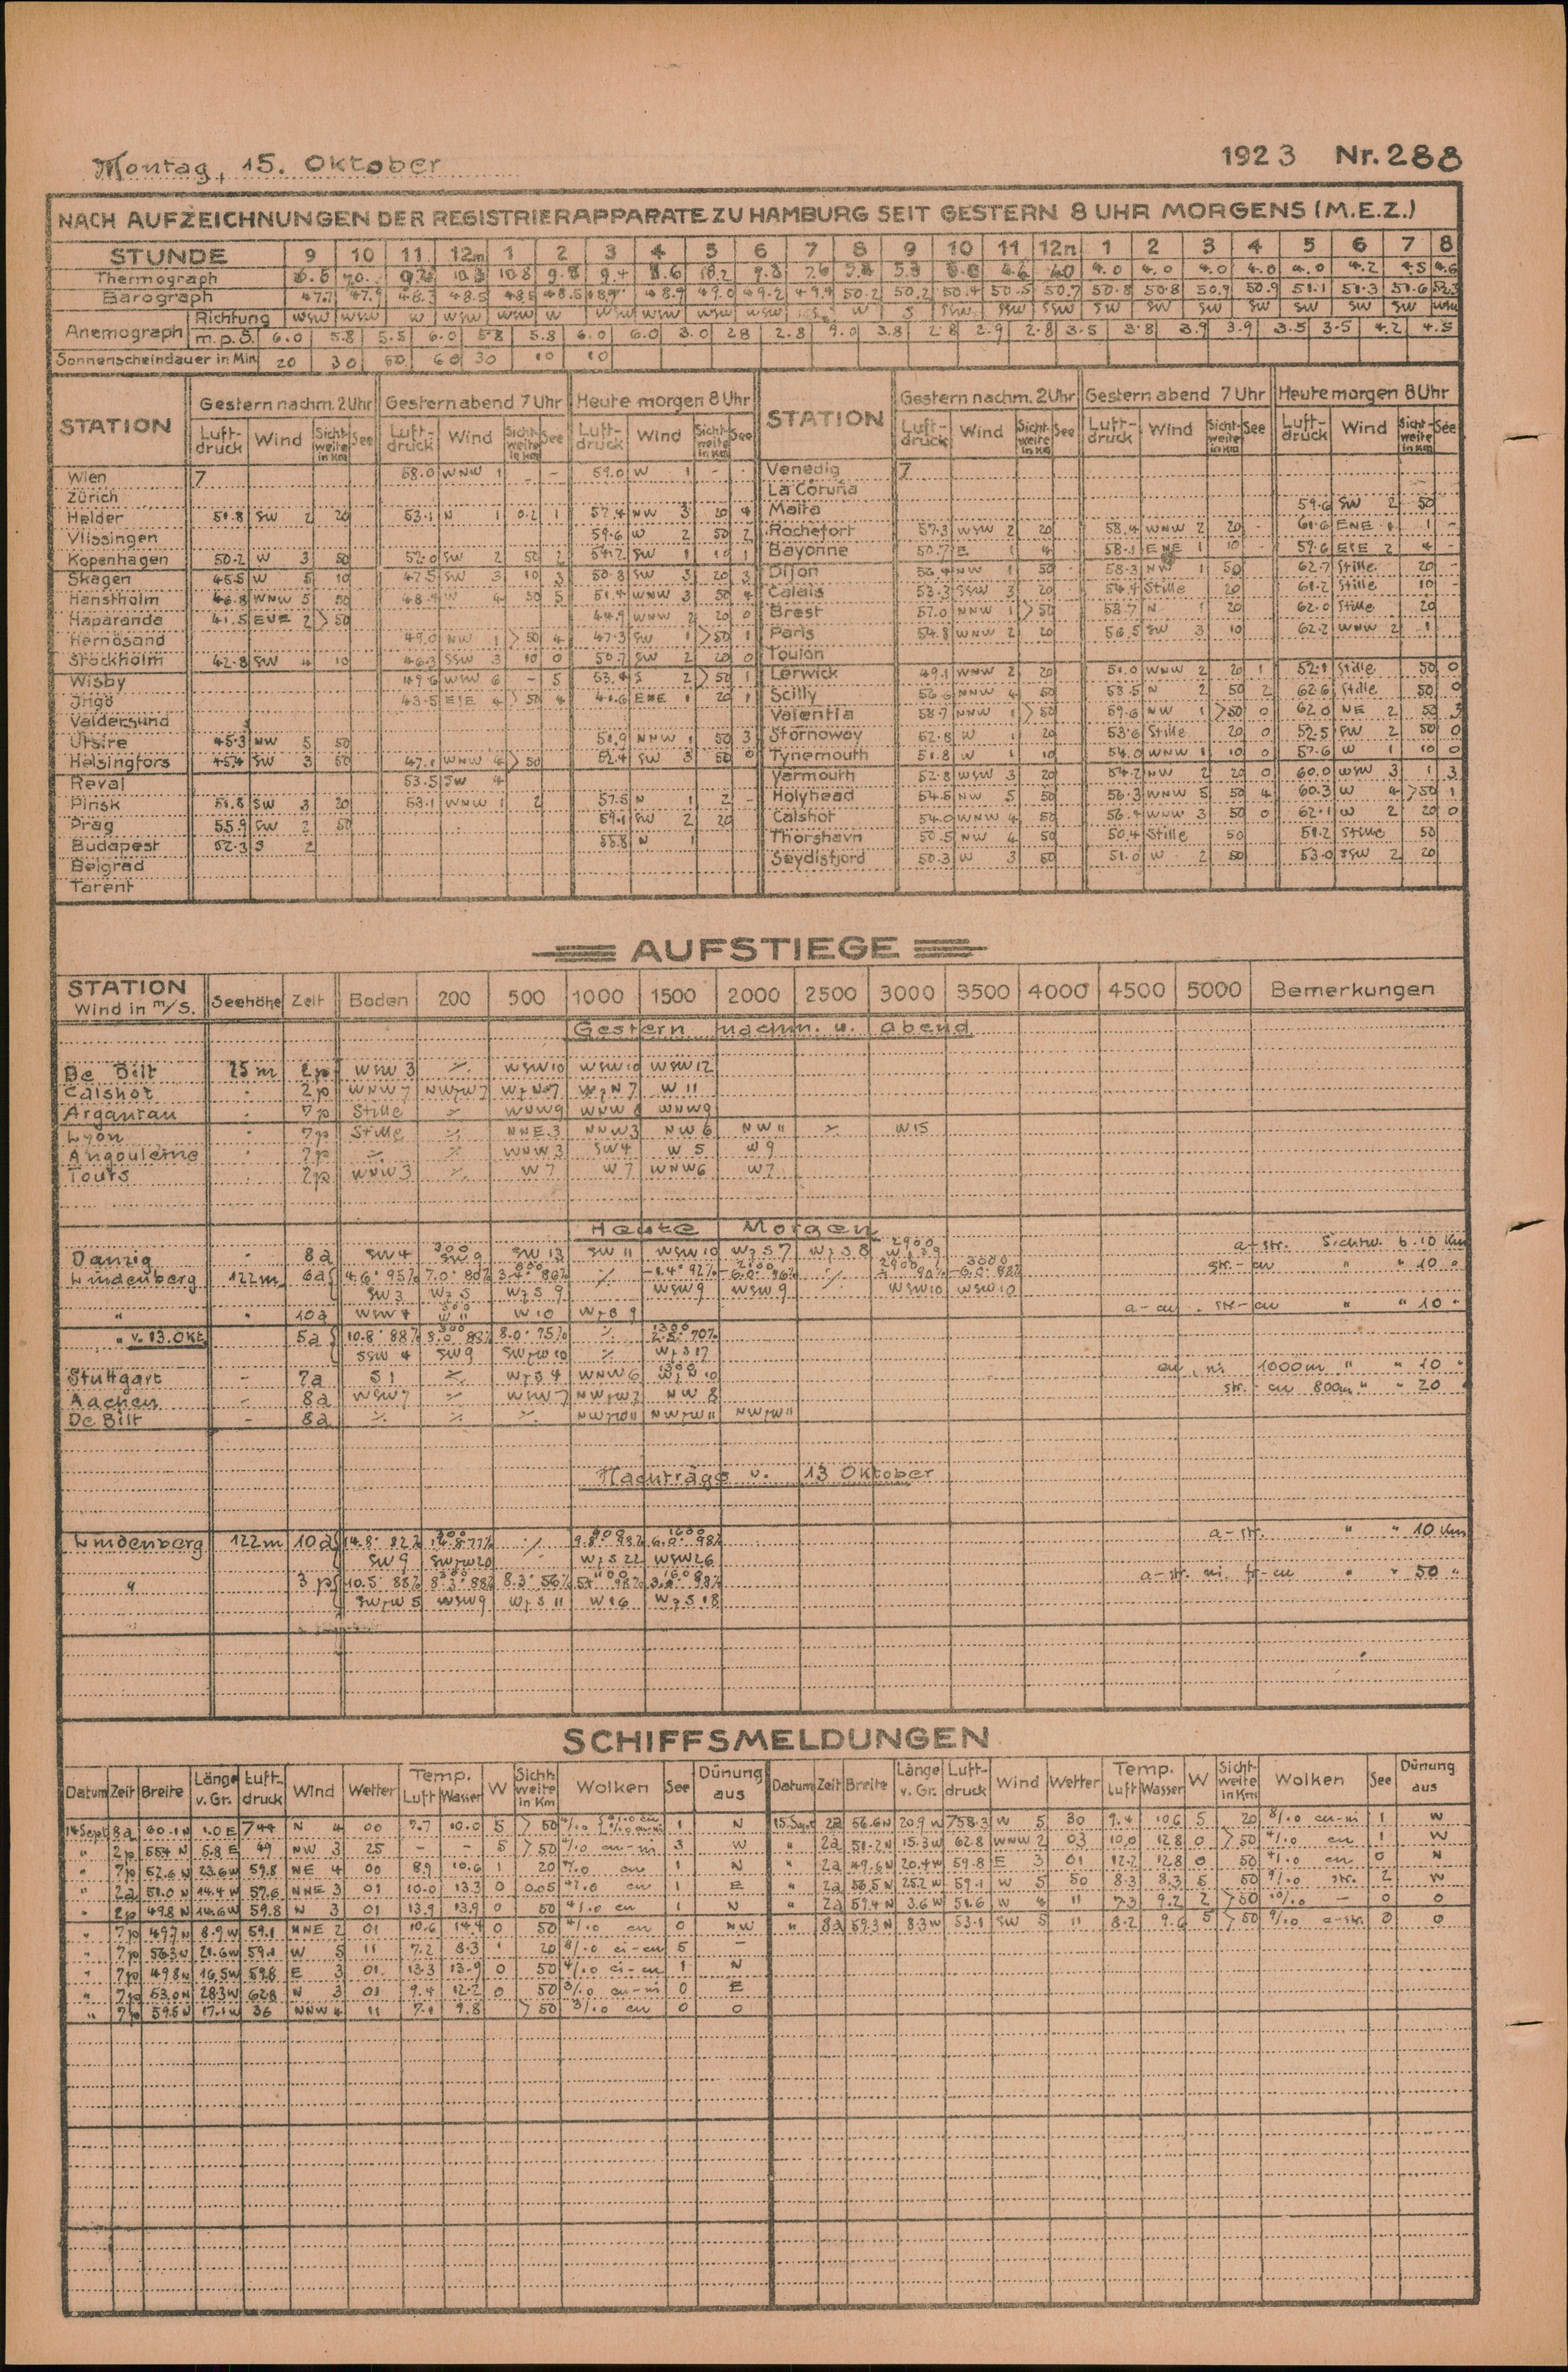 Montag, 15. Oktober 1923 Nr. 288
NACH AUFZEICHNUNGEN DER REGISTRIERAPPARATE ZU HAMBURG SEIT GESTERN 8 UHR MORGENS (M.E.Z.)
STUNDE 9 10 11 12m 1 2 3 4 5 6 7 8 9 10 11 12n 1 2 3 4 5 6 7 8
Thermograph 10.8 9.8 9.4 8.6 4.0 4.0 4.0 4.0 4.0 4.2 4.5 4.6
Barograph 47.7 47.9 48.3 48.5 48.5 48.5 48.9 48.9 49.0 49.2 49.9 50.2 50.2 50.4 50.5 50.7 50.8 50.8 50.9 50.9 51.1 51.3 51.6 52.3
Anemograph Richtung WSW WSW W WSW WSW W WSW WSW WSW WSW W S SSW SSW SSW SW SW SW SW SW SW SW WSW
m.p.S. 6.0 5.8 5.5 6.0 5.8 5.8 6.0 6.0 3.0 2.8 2.8 3.8 2.8 2.9 2.8 3.5 3.8 3.9 3.9 3.5 3.5 4.2 4.5
Sonnenscheindauer in Min. 20 30 50 60 30 10 10
STATION Gestern nachm. 2 Uhr Gestern abend 7 Uhr Heute morgen 8 Uhr STATION Gestern nachm. 2 Uhr Gestern abend 7 Uhr Heute morgen 8 Uhr
Luft-druck Wind Sicht-weite in Km See Luft-druck Wind Sicht-weite in Km See Luft-druck Wind Sicht-weite in Km See Luft-druck Wind Sicht-weite in Km See Luft-druck Wind Sicht-weite in Km See Luft-druck Wind Sicht-weite in Km See
Wien 7 58.0 WNW 1 - 59.0 W 1 - - Venedig 7
Zürich La Coruña
Helder 51.8 SW 2 20 53.1 N 1 0.2 1 57.4 NW 3 20 4 Malta 59.6 SW 2 50
Vlissingen 59.6 W 2 50 2 Rochefort 57.3 WSW 2 20 58.4 WNW 2 20 - 61.6 ENE 1 1 -
Kopenhagen 50.2 W 3 50 52.0 SW 2 50 2 54.2 SW 1 10 1 Bayonne 50.7 E 1 4 58.1 ENE 1 10 59.6 ESE 2 4 -
Skagen 45.5 W 5 10 47.5 SW 3 10 3 50.8 SW 3 20 3 Dijon 56.4 NW 1 50 58.3 NW 1 50 62.7 Stille 20 -
Hanstholm 46.8 WNW 5 50 48.9 W 4 50 5 51.4 WNW 3 50 4 Calais 53.3 SSW 3 20 54.4 Stille 20 61.2 Stille 10 -
Haparanda 41.5 ENE 2 >50 44.9 WNW 2 20 0 Brest 57.0 NNW 1 >50 58.7 N 1 20 62.0 Stille 20
Hernösand 49.0 NW 1 >50 4 47.3 SW 1 >50 1 Paris 54.8 WNW 2 20 56.5 SW 3 10 62.2 WNW 2 1
Stockholm 42.8 SW 4 10 46.3 SSW 3 10 0 50.7 SW 2 20 0 Toulon
Wisby 49.6 WSW 6 - 5 53.4 S 2 >50 1 Lerwick 49.1 WNW 2 20 51.0 WNW 2 20 1 52.1 Stille 50 0
Ingö 43.5 ESE 4 >50 4 41.6 ENE 1 20 1 Scilly 56.6 NNW 4 50 58.5 N 2 50 2 62.6 Stille 50 0
Valdersund Valentia 58.7 NNW 1 >50 59.6 NW 1 >50 0 62.0 NE 2 50 3
Utsire 45.3 NW 5 50 51.9 NNW 1 50 3 Stornoway 52.8 W 1 20 53.6 Stille 20 0 52.5 SW 2 50 0
Helsingfors 45.4 SW 3 50 47.1 WNW 4 >50 52.4 SW 3 50 0 Tynemouth 51.8 W 1 10 54.0 WNW 1 10 0 57.6 W 1 10 0
Reval 53.5 SW 4 Yarmouth 52.8 WSW 3 20 54.2 NW 2 20 0 60.0 WSW 3 1 3
Pinsk 51.8 SW 3 20 53.1 WNW 1 2 57.5 N 1 2 - Holyhead 54.5 NW 5 50 56.3 WNW 5 50 4 60.3 W 4 >50 1
Prag 55.9 SW 2 50 59.1 SW 2 20 Calshot 54.0 WNW 4 50 56.4 WNW 3 50 0 62.1 W 2 20 0
Budapest 52.3 S 2 55.8 N 1 Thorshavn 50.5 NW 4 50 50.4 Stille 50 51.2 Stille 50
Belgrad Seydisfjord 50.3 W 3 50 51.0 W 2 50 53.0 SSW 2 20
Tarent
AUFSTIEGE
STATION Wind in m/S. Seehöhe Zeit Boden 200 500 1000 1500 2000 2500 3000 3500 4000 4500 5000 Bemerkungen
Gestern nachm. u. abend
De Bilt 25 m 2p WSW 3 ٪ WSW 10 WSW 10 WSW 12
Calshot 2p WNW 7 NWzW 7 WzN 7 WzN 7 W 11
Argantau 7p Stille WNW 9 WNW WNW 9
Lyon 7p Stille NNE 3 NNW 3 NW 6 NW 11 W 15
Angoulème 2p WNW 3 SW 4 W 5 W 9
Tours 2p WNW 3 W 7 W 7 WNW 6 W 7
Heute Morgen
Danzig 8a SW 4 300 SW 9 SW 13 SW 11 WSW 10 WzS 7 WzS 8 2900 a-str. Sichtw. b. 10 Km
Lindenberg 122 m 6a 4.6° 95% 7.0° 80% 3.4° 86% -1.4° 92% -6.0° 96% -6.0° 82% str.-cu " " 10 "
SW 3 WzS WzS 9 WSW 9 WSW 9 WSW 10 WSW 10
" " 10a WSW 4 W 11 W 10 WzS 9 a-cu. str-cu " " 10 "
" v. 13. Okt. 5a 10.8° 88% 8.0° 75% 1300 70%
SSW 4 SW 9 SWzW 10 WzS 17
Stuttgart - 7a S 1 WzS 4 WNW 6 cu, ni. 1000m " " 10 "
Aachen - 8a WSW 7 WSW 7 NWzW 7 NW 8 str.-cu 800m " " 20 "
De Bilt - 8a NWzW 11 NWzW 11 NWzW 11
Nachträge v. 13 Oktober
Lindenberg 122 m 10a 14.8° 82% 9.8° 98% 6.0° 98% a-str. " " 10 Km
SW 9 SWzW 20 WzS 22 WSW 26
" 3p 10.5° 88% 8.3° 88% 8.3° 56% 98% 98% a-str. ni. fr-cu " " 50 "
SWzW 5 WSW 9 WzS 11 W 16 WzS 18
SCHIFFSMELDUNGEN
Datum Zeit Breite Länge v. Gr. Luft-druck Wind Wetter Temp. Luft Wasser W Sicht-weite in Km Wolken See Dünung aus Datum Zeit Breite Länge v. Gr. Luft-druck Wind Wetter Temp. Luft Wasser W Sicht-weite in Km Wolken See Dünung aus
14 Sept 8a 60.1 N 1.0 E 744 N 4 00 7.7 10.0 5 >50 1 N 15. Sept 2a 56.6 N 20.9 W 758.3 W 5 30 9.4 10.6 5 20 8/10 cu-ni 1 W
" 2p 55.4 N 5.8 E 49 NW 3 25 - - 5 >50 cu-ni 3 W " 2a 51.2 N 15.3 W 62.8 WNW 2 03 10.0 12.8 0 >50 4/10 cu 1 W
" 7p 52.6 N 23.6 W 59.8 NE 4 00 8.9 10.6 1 20 cu 1 N " 2a 49.6 N 20.4 W 59.8 E 3 01 12.2 12.8 0 50 4/10 cu 0 N
" 2a 51.0 N 14.4 W 57.6 NNE 3 01 10.0 13.3 0 0.05 cu 1 E " 2a 56.5 N 25.2 W 59.1 W 5 50 8.3 8.3 5 50 9/10 str. 2 W
" 2p 49.8 N 14.6 W 59.8 N 3 01 13.9 13.9 0 50 4/10 cu 1 N " 2a 59.4 N 3.6 W 51.6 W 4 11 7.3 9.2 2 >50 10/10 - 0 0
" 7p 49.7 N 8.9 W 59.1 NNE 2 01 10.6 14.4 0 50 4/10 cu 0 NW " 8a 59.3 N 8.3 W 53.1 SW 5 11 8.2 9.6 5 >50 9/10 a-str. 0 0
" 7p 56.3 N 21.6 W 59.1 W 5 11 7.2 8.3 1 20 8/10 ci-cu 5 -
" 7p 49.8 N 16.5 W 59.8 E 3 01 13.3 13.9 0 50 4/10 ci-cu 1 N
" 7p 53.0 N 28.3 W 62.8 N 3 01 9.4 12.2 0 50 3/10 cu-ni 0 E
" 7p 59.5 N 17.1 W 36 NNW 4 11 7.1 9.8 >50 3/10 cu 0 0